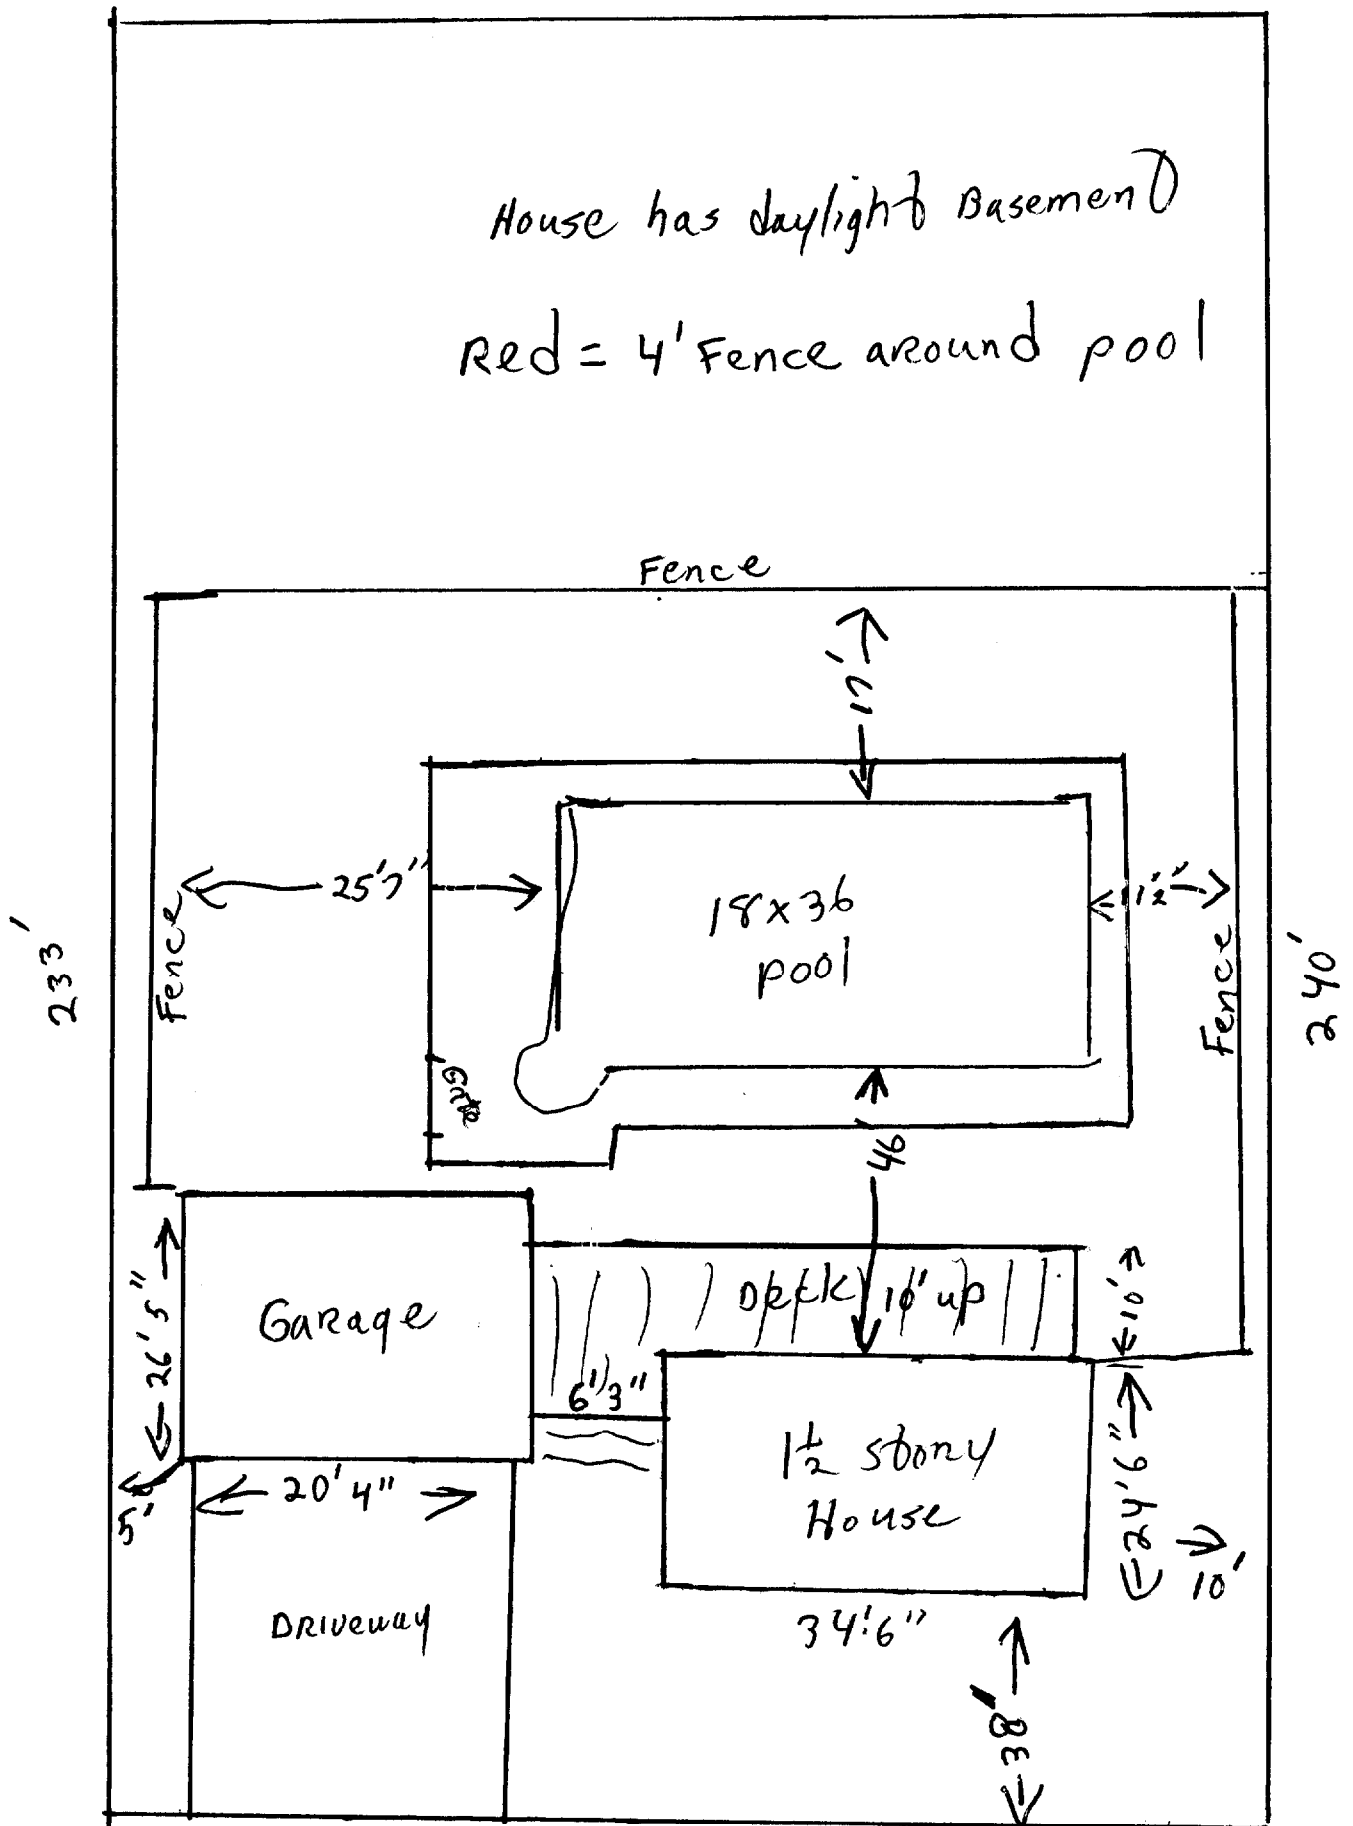 House has daylight Basement
Red = 4' Fence around pool
Fence
17'
25'7"
18x36
pool
11'2"
Fence
Fence
233'
240'
Gate
46
Garage
26'5"
Deck 10' up
10'
6'3"
1 1/2 story
House
24'6"
10'
5'
20'4"
Driveway
34'6"
38'